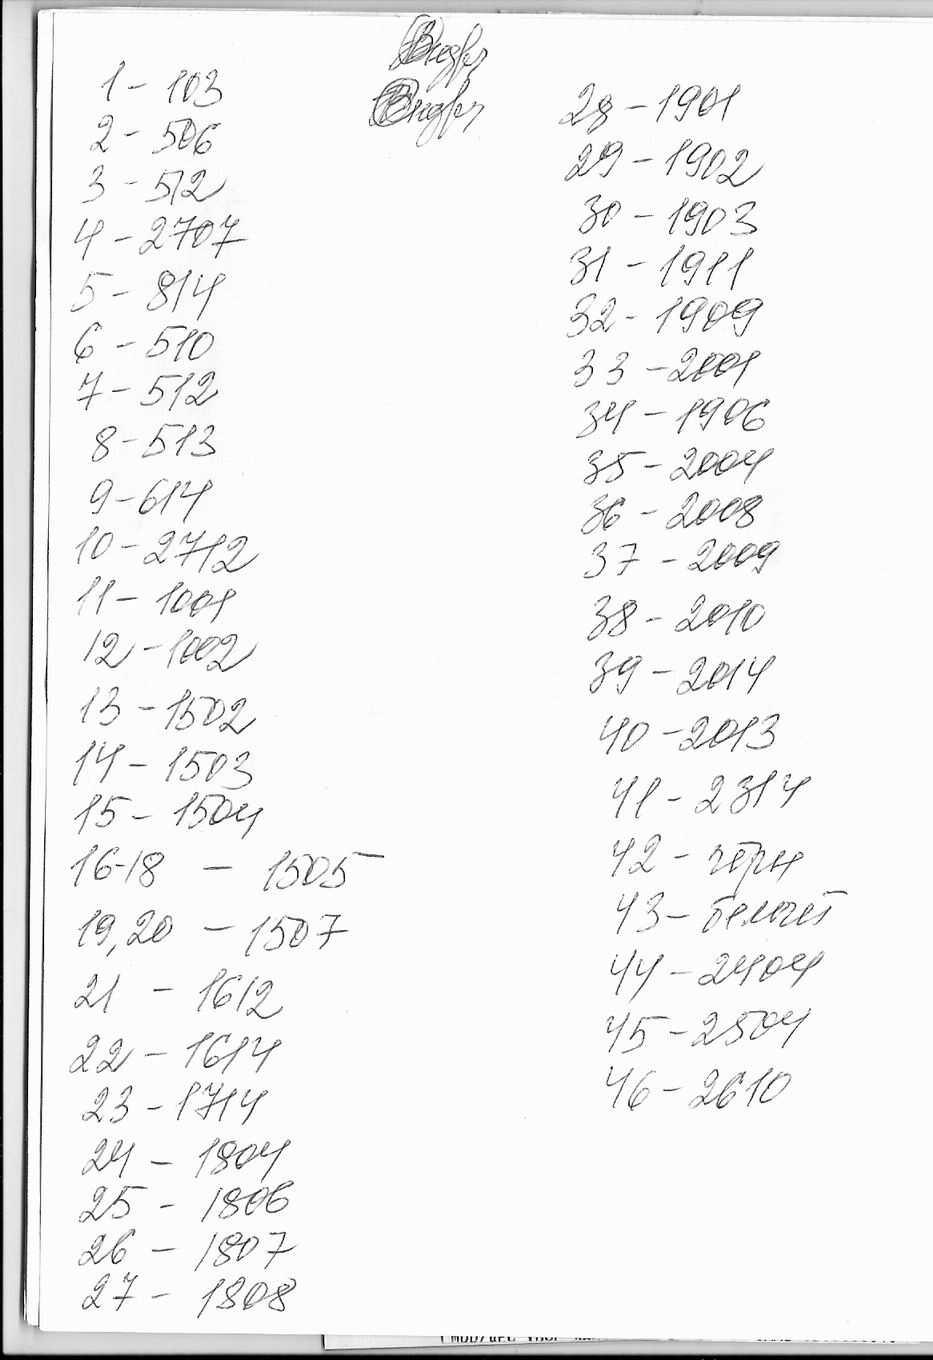 1 - 103
2 - 506
3 - 512
4 - 2707
5 - 814
6 - 510
7 - 512
8 - 513
9 - 614
10 - 2712
11 - 1001
12 - 1002
13 - 1502
14 - 1503
15 - 1504
16-18 - 1505
19,20 - 1507
21 - 1612
22 - 1614
23 - 1714
24 - 1804
25 - 1806
26 - 1807
27 - 1808
28 - 1901
29 - 1902
30 - 1903
31 - 1911
32 - 1909
33 - 2001
34 - 1906
35 - 2004
36 - 2008
37 - 2009
38 - 2010
39 - 2014
40 - 2013
41 - 2314
42 - черн
43 -
44 - 2404
45 - 2504
46 - 2610